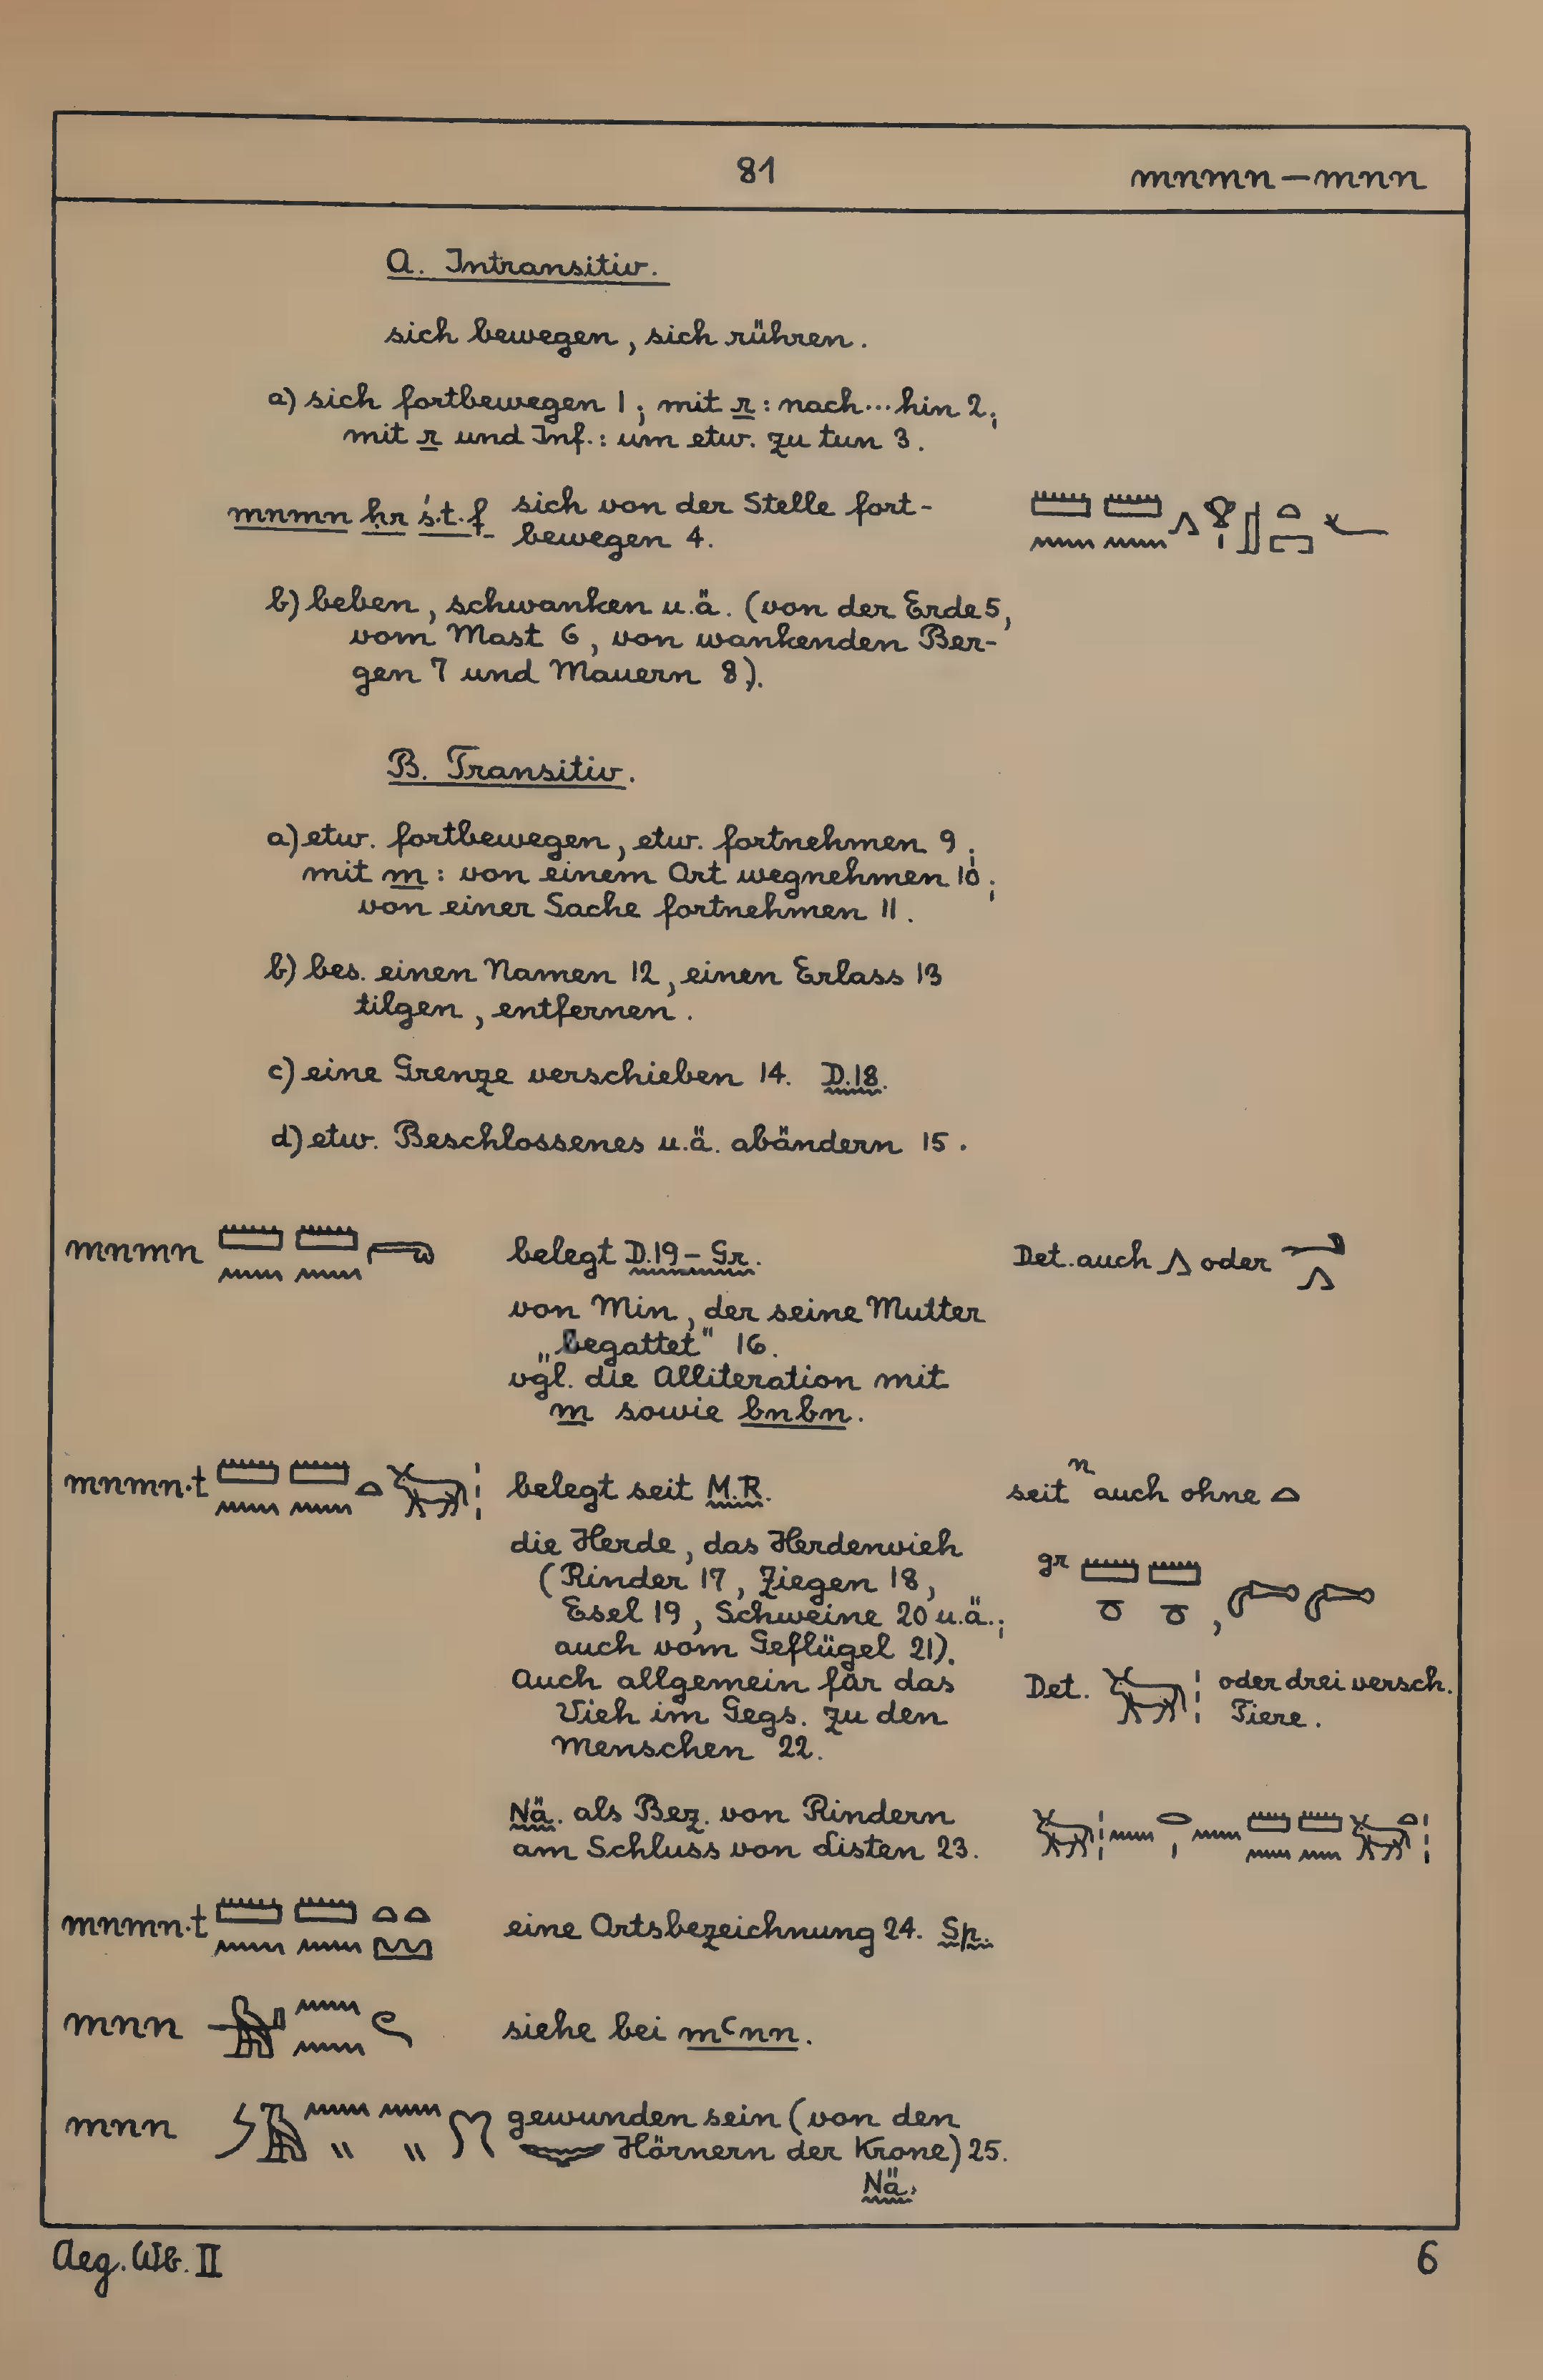 81
mnmn – mnn
A. Intransitiv.
sich bewegen, sich rühren.
a) sich fortbewegen 1; mit r: nach...hin 2;
mit r und Inf.: um etw. zu tun 3.
mnmn ḥr ś.t.f sich von der Stelle fort-
bewegen 4.
b) beben, schwanken u.ä. (von der Erde 5,
vom Mast 6, von wankenden Ber-
gen 7 und Mauern 8).
B. Transitiv.
a) etw. fortbewegen, etw. fortnehmen 9;
mit m: von einem Ort wegnehmen 10;
von einer Sache fortnehmen 11.
b) bes. einen Namen 12, einen Erlass 13
tilgen, entfernen.
c) eine Grenze verschieben 14. D.18.
d) etw. Beschlossenes u.ä. abändern 15.
mnmn belegt D.19 – Gr. Det. auch oder
von Min, der seine Mutter
„begattet" 16.
vgl. die Alliteration mit
m sowie bnbn.
mnmn.t belegt seit M.R. seit n auch ohne
die Herde, das Herdenvieh
(Rinder 17, Ziegen 18, gr
Esel 19, Schweine 20 u.ä.;
auch vom Geflügel 21).
Auch allgemein für das Det. oder drei versch.
Vieh im Gegs. zu den Tiere.
Menschen 22.
Nä. als Bez. von Rindern
am Schluss von Listen 23.
mnmn.t eine Ortsbezeichnung 24. Sp.
mnn siehe bei mꜥnn.
mnn gewunden sein (von den
Hörnern der Krone) 25.
Nä.
Aeg. Wb. II
6